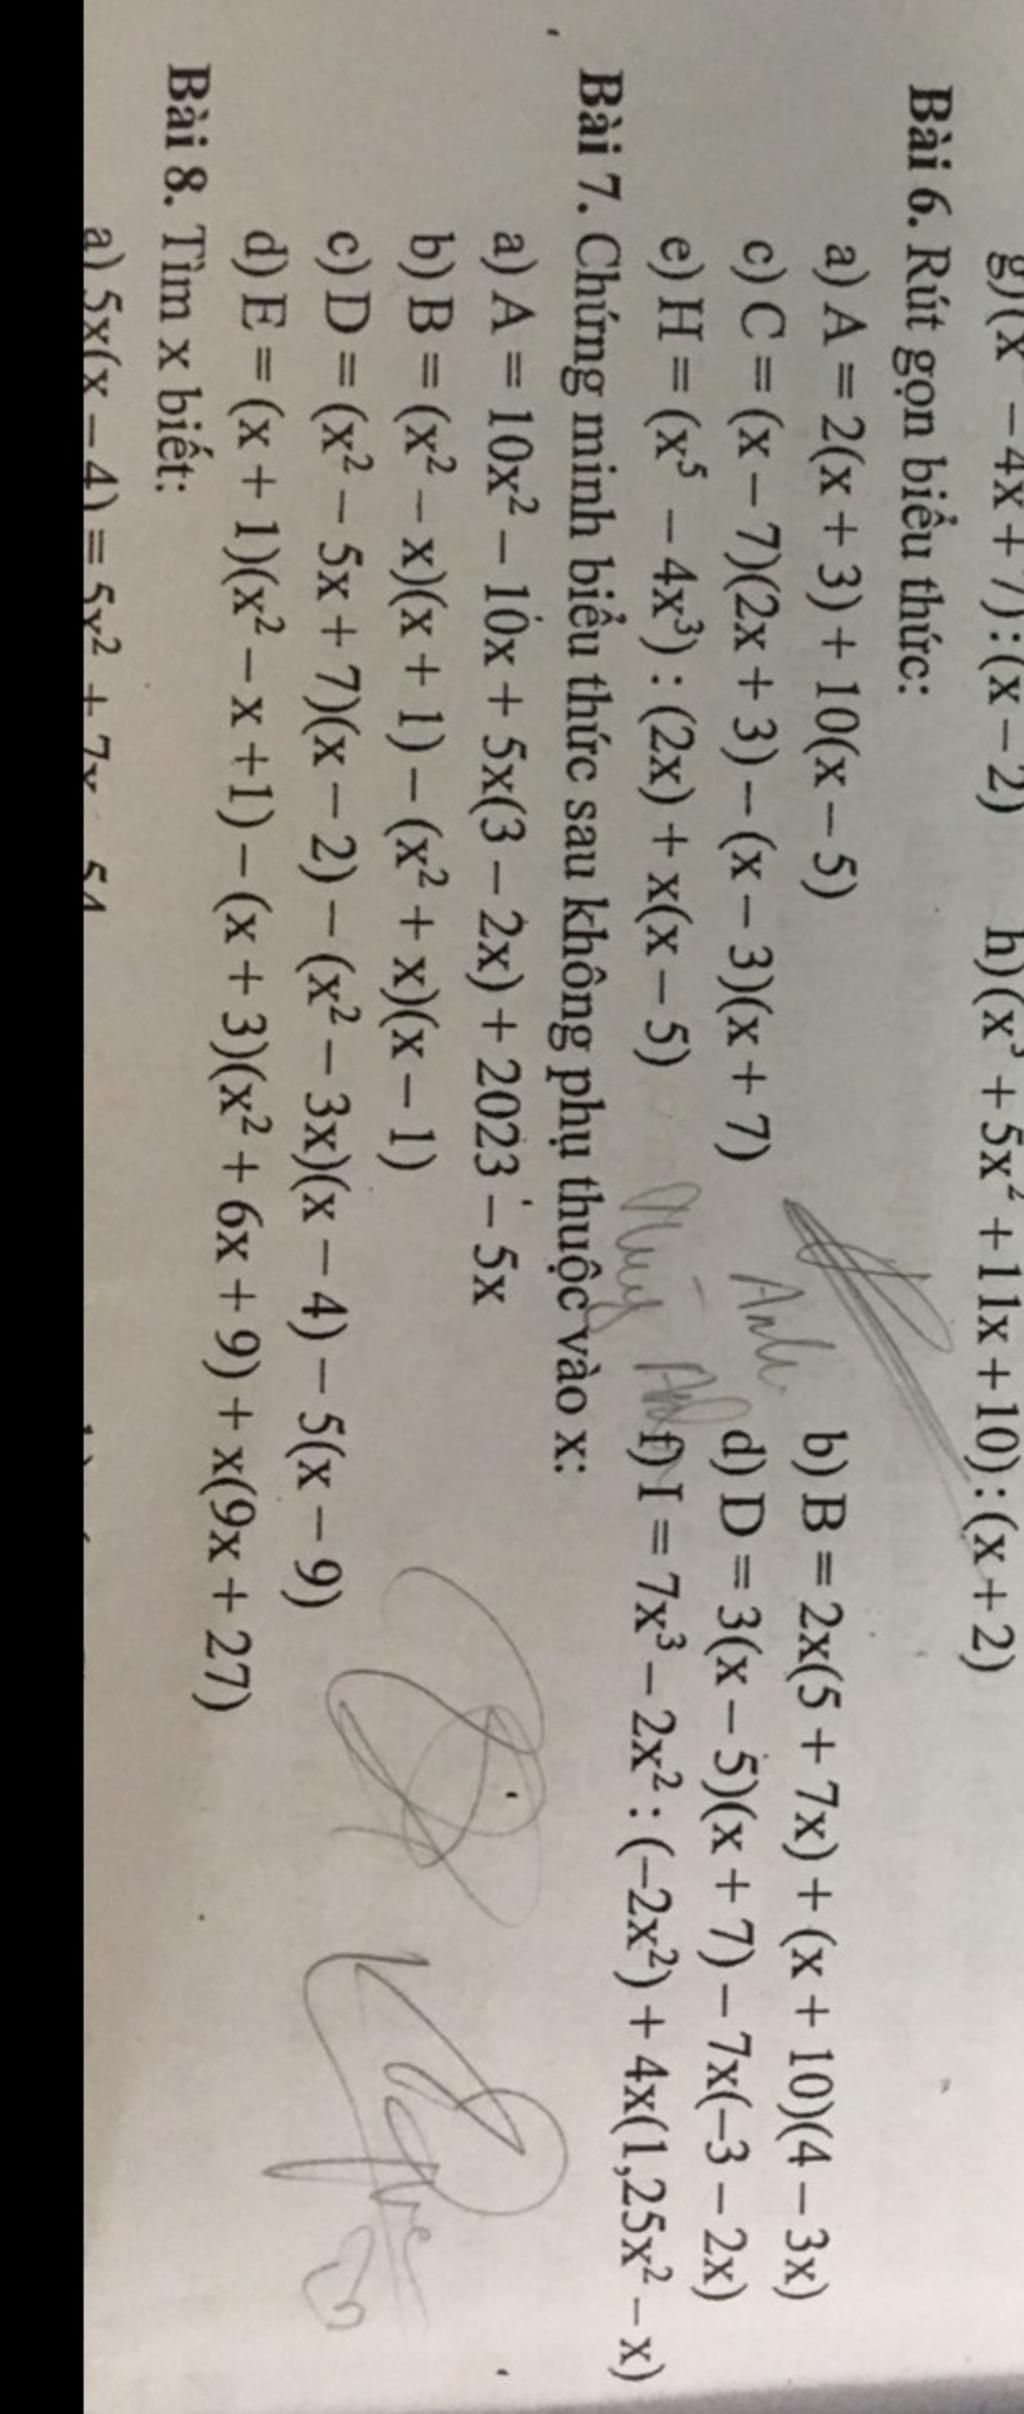 g)(x² – 4x + 7) : (x – 2) h)(x³ + 5x² + 11x + 10) : (x + 2)
Bài 6. Rút gọn biểu thức:
a) A = 2(x + 3) + 10(x – 5) b) B = 2x(5 + 7x) + (x + 10)(4 – 3x)
c) C = (x – 7)(2x + 3) – (x – 3)(x + 7) Anh d) D = 3(x – 5)(x + 7) – 7x(–3 – 2x)
e) H = (x⁵ – 4x³) : (2x) + x(x – 5) f) I = 7x³ – 2x² : (–2x²) + 4x(1,25x² – x)
Bài 7. Chứng minh biểu thức sau không phụ thuộc vào x:
a) A = 10x² – 10x + 5x(3 – 2x) + 2023 – 5x
b) B = (x² – x)(x + 1) – (x² + x)(x – 1)
c) D = (x² – 5x + 7)(x – 2) – (x² – 3x)(x – 4) – 5(x – 9)
d) E = (x + 1)(x² – x +1) – (x + 3)(x² + 6x + 9) + x(9x + 27)
Bài 8. Tìm x biết:
a) 5x(x – 4) = 5x² + 7x 54